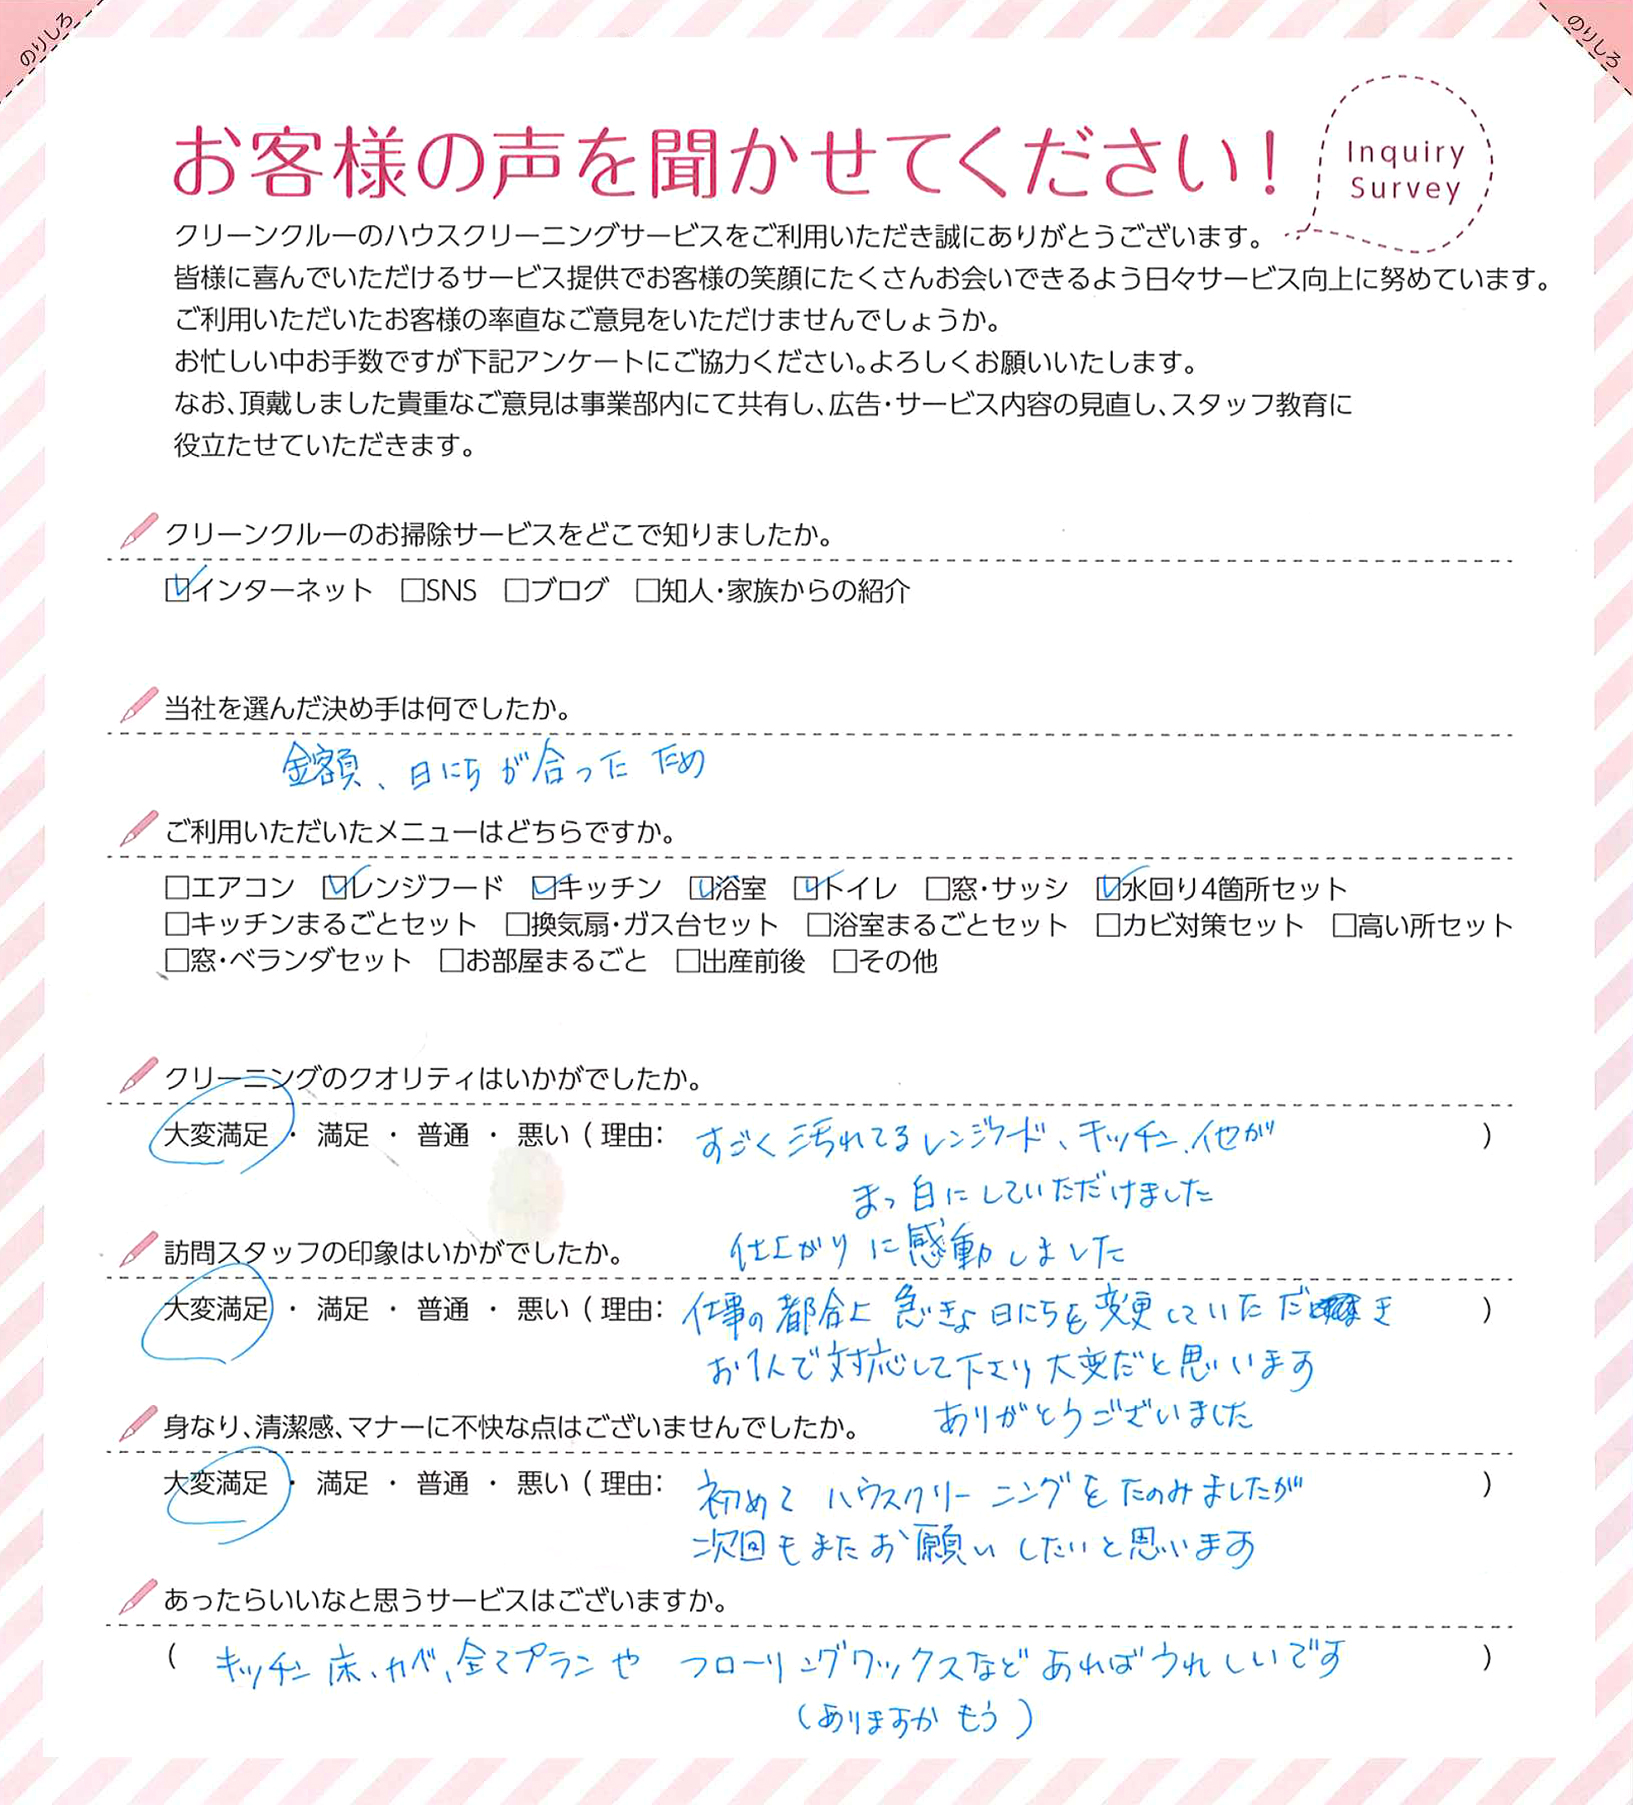 のりしろ
のりしろ
お客様の声を聞かせてください!
Inquiry
Survey
クリーンクルーのハウスクリーニングサービスをご利用いただき誠にありがとうございます。
皆様に喜んでいただけるサービス提供でお客様の笑顔にたくさんお会いできるよう日々サービス向上に努めています。
ご利用いただいたお客様の率直なご意見をいただけませんでしょうか。
お忙しい中お手数ですが下記アンケートにご協力ください。よろしくお願いいたします。
なお、頂戴しました貴重なご意見は事業部内にて共有し、広告・サービス内容の見直し、スタッフ教育に
役立たせていただきます。
クリーンクルーのお掃除サービスをどこで知りましたか。
☑インターネット □SNS □ブログ □知人・家族からの紹介
当社を選んだ決め手は何でしたか。
金額、日にちが合ったため
ご利用いただいたメニューはどちらですか。
□エアコン ☑レンジフード ☑キッチン ☑浴室 ☑トイレ □窓・サッシ ☑水回り4箇所セット
□キッチンまるごとセット □換気扇・ガス台セット □浴室まるごとセット □カビ対策セット □高い所セット
□窓・ベランダセット □お部屋まるごと □出産前後 □その他
クリーニングのクオリティはいかがでしたか。
大変満足 ・ 満足 ・ 普通 ・ 悪い ( 理由: すごく汚れてるレンジフード、キッチン、他が )
まっ白にしていただけました
仕上がりに感動しました
訪問スタッフの印象はいかがでしたか。
大変満足 ・ 満足 ・ 普通 ・ 悪い ( 理由: 仕事の都合上 急きょ日にちを変更していただき )
お1人で対応して下さり大変だと思います
ありがとうございました
身なり、清潔感、マナーに不快な点はございませんでしたか。
大変満足 ・ 満足 ・ 普通 ・ 悪い ( 理由: 初めてハウスクリーニングをたのみましたが )
次回もまたお願いしたいと思います
あったらいいなと思うサービスはございますか。
( キッチン床、カベ、全てプランや フローリングワックスなどあればうれしいです )
(ありますか もう)